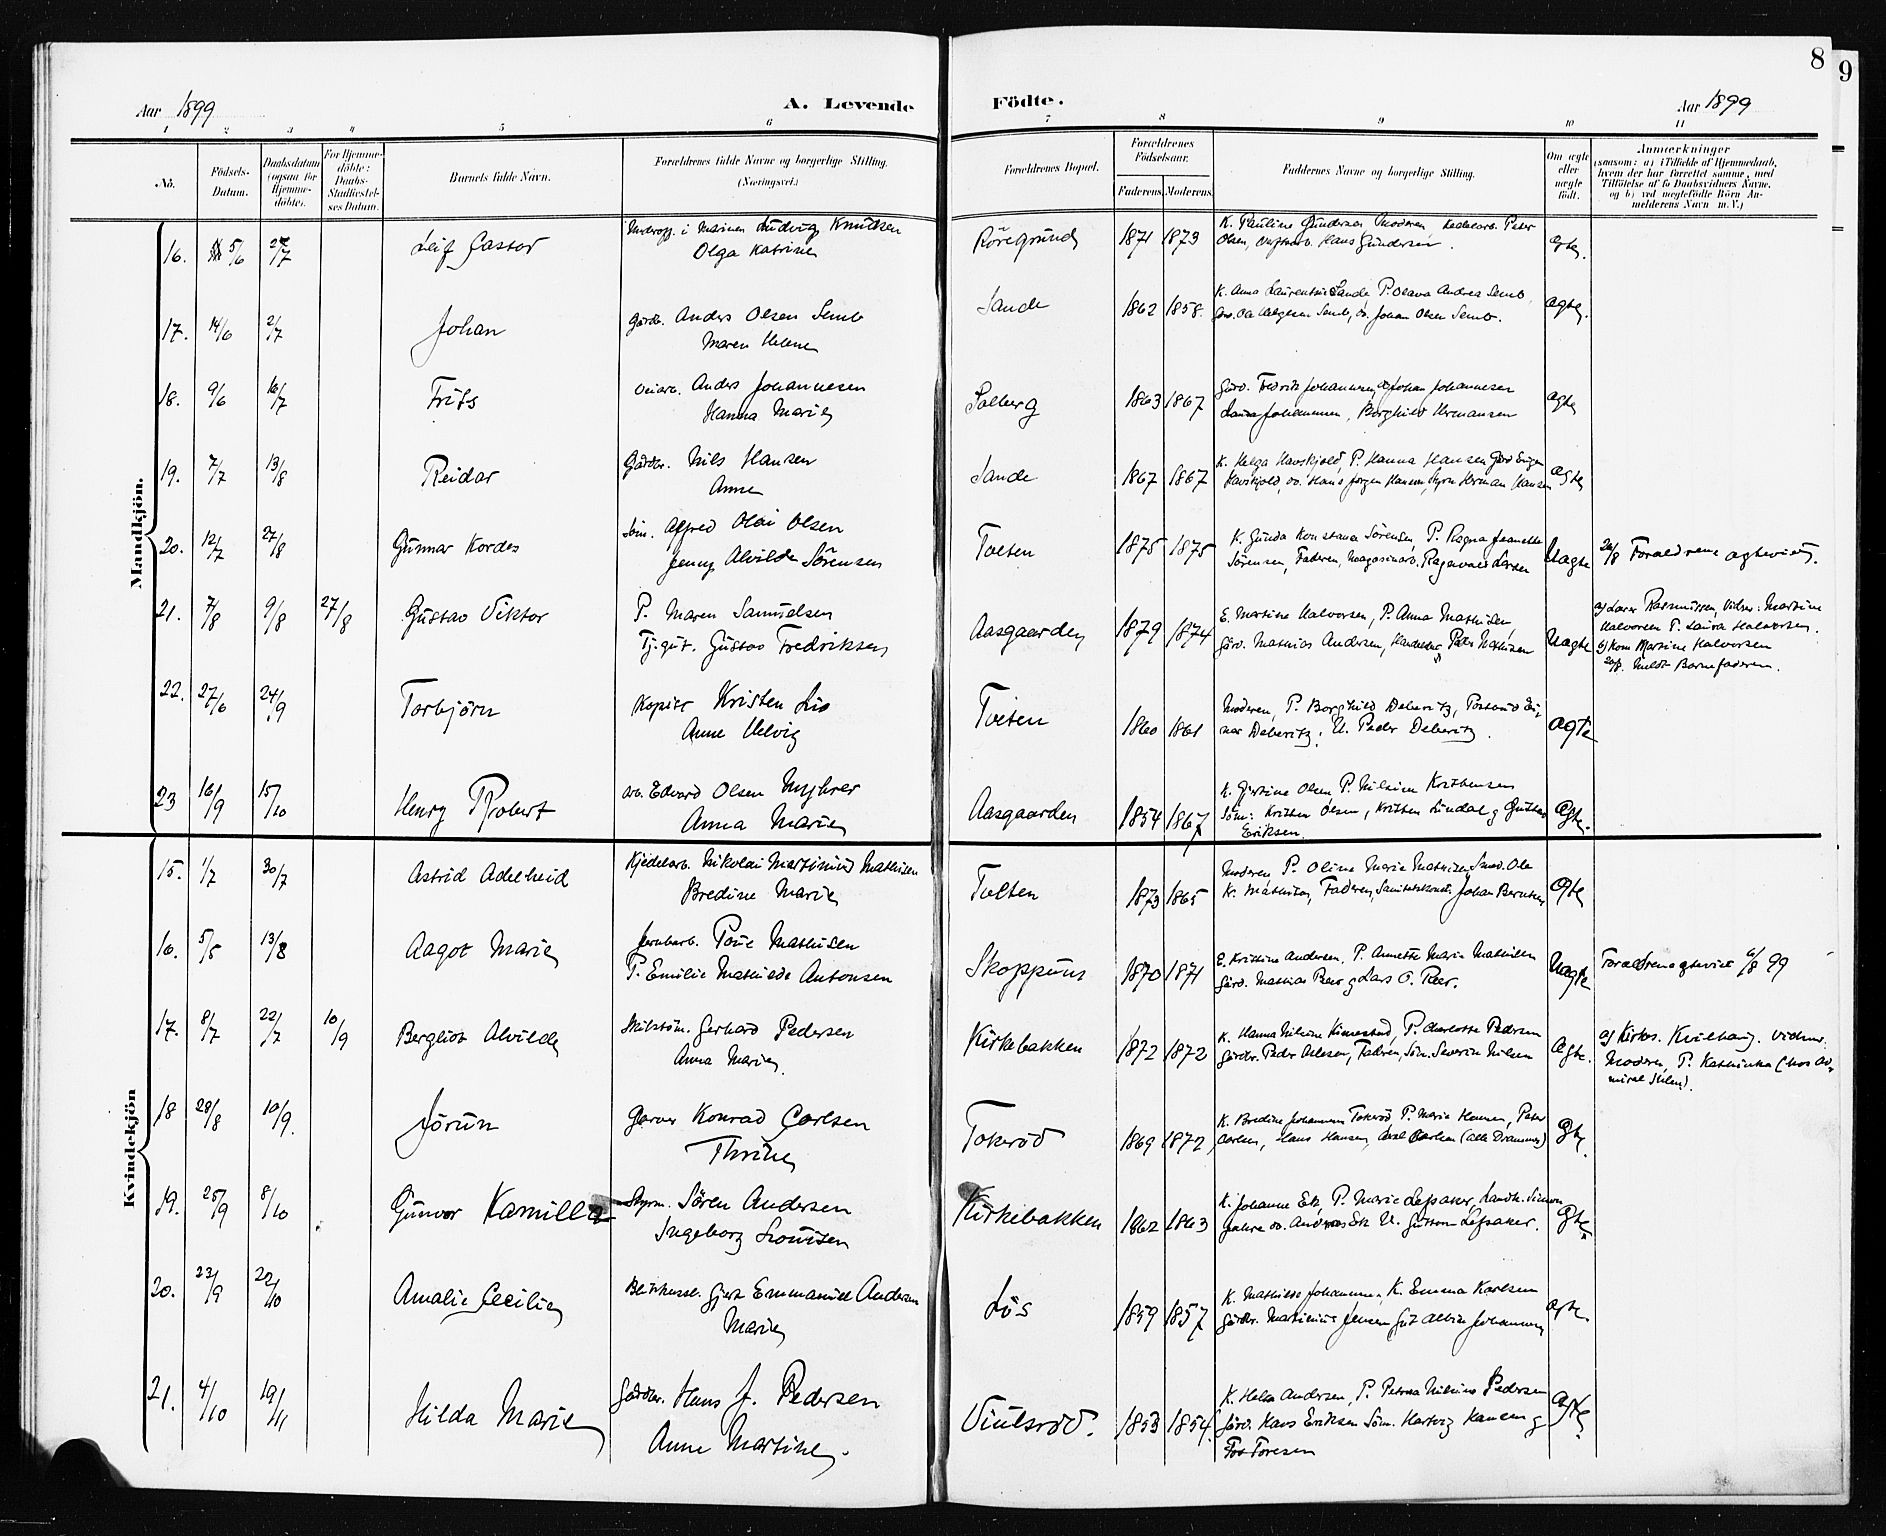 8
9
Aar 1899
A. Levende
Födte.
Aar 1899
1 2 3 4 5 6 7 8 9 10 11
No.
Födsels-
Datum.
Daabsdatum
(ogsaa for
Hjemme-
döbte).
For Hjemme-
döbte:
Daabs-
Stadfæstel-
ses Datum.
Barnets fulde Navn.
Forældrenes fulde Navne og borgerlige Stilling.
(Næringsvei.)
Forældrenes Bopæl.
Forældrenes
Födselsaar.
Faderens. Moderens.
Faddernes Navne og borgerlige Stilling.
Om ægte
eller
uægte
født.
Anmærkninger
(saasom: a) i Tilfælde af Hjemmedaab,
hvem der har forrettet samme, med
Tilföielse af to Daabsvidners Navne,
og b) ved uægtefödte Börn An-
melderens Navn m. V.)
Mandkjön.
16. 5/6 2/7 Leif Castor
i Marinen Ludvig Knudsen
Olga Katrine
Röregrund 1871 1873
K. Pauline Gundersen Moderen, Kedelarb. Peter
Olsen, Hans Gundersen.
ægte.
17. 14/6 2/7 Johan
Gårdb. Anders Olsen Semb
Maren Helene
Sande 1862 1858.
K. Anna Laurentsen Sande, P. Olava Andrea Semb,
Johan Olsen Semb.
ægte.
18. 9/6 16/7 Frits
Anders Johannesen
Hanna Marie
Solberg 1863 1867
Gård. Fredrik Johannesen, Johan Johannesen
Laura Johannesen, Borghild Hermansen
ægte
19. 7/7 13/8 Reidar
Gårdbr. Nils Hansen
Anne
Sande 1867 1867
K. Helga Havskjold, P. Hanna Hansen
Havskjold, Hans Jørgen Hansen, Styrm Herman Hansen
ægte
20. 12/7 27/8 Gunnar Kordes
Søm. Alfred Olai Olsen
Jenny Alvilde Sörensen
Tveten 1875 1875
K. Gunda Konstanse Sörensen, P. Ragna Jeanette
Sörensen, Faderen, Magasinarb. Ragnvald Larsen
Uægte
26/8 Forældrene ægteviet.
21. 7/8 9/8 27/8 Gustav Viktor
P. Maren Samuelsen
Tj.gut. Gustav Fredriksen
Aasgaarden 1879 1874
E. Martine Halvorsen, P. Anna Mathisen,
Gård. Mathias Andersen, Peder Mathisen
Uægte
a) Lærer Rasmussen, Vidner: Martine
Halvorsen P. Laura Halvorsen.
b) Kone Martine Halvorsen
Barnefaderen.
22. 27/6 24/9 Torbjörn
Kristen Lio
Anne Helvig
Tveten 1860 1861
Moderen, P. Borghild Deberitz, Ei-
nar Deberitz, U. Peder Deberitz.
ægte
23 16/9 15/10 Henry Robert
Arb. Edvard Olsen Myhrer
Anna Marie
Aasgaarden 1854 1867
K. Gjertine Olsen P. Kristensen
Søm: Kristen Olsen, Kristen Lindal og Gustav
Eriksen.
Ægte.
Kvindekjön
15. 1/7 30/7 Astrid Adelheid
Kjedelarb. Nikolai Martinius Mathisen
Bredine Marie
Tveten 1873 1865
Moderen P. Oline Marie Mathisen, Ole
Kr. Mathisen, Faderen, Johan Berntsen
Ægte
16. 5/5 13/8 Aagot Marie
Jernbarb. Poul Mathisen
P. Emilie Mathilde Antonsen
Skoppum 1870 1871
E. Kristine Andersen, P. Annette Marie Mathisen
Gård. Mathias Reer og Lars O. Reer.
Uægte
Forældrene ægteviet 6/8 99
17. 8/7 22/7 10/9 Bergliot Alvilde
Gerhard Pedersen
Anna Marie.
Kirkebakken 1872 1872
K. Hanna Nilsine, P. Charlotte Pedersen
Gårdbr. Peder Faderen, Søm. Severin Nilsen
Ægte.
a) Kirkes. Kvilhaug. Vidner:
Moderen, P. Kathinka (hos Ad-
miral).
18 28/8 10/9. Jörun
Garver Konrad Carlsen
Thrine
Tokeröd 1869 1872
K. Bredine Johannesen Tokeröd, P. Marie Hansen, Peter
Carlsen, Hans Hansen, Axel Carlsen (alle Drammen)
Ægte.
19. 25/9 8/10 Gunvor Kamilla
Styrm. Sören Andersen
Ingeborg Lovisen
Kirkebakken 1862 1863
K. Johanne Eik, P. Marie Lefsaker, Simon
Andreas Eik U. Gustav Lefsaker.
Ægte
20. 23/9 22/10 Amalie Cecilie
Gjert Emmanuel Andersen
Marie
Lös 1859 1857
K. Mathilde Johannesen, K. Emma Karlsen
Gårdbr. Martinius Jensen Gut Albin Johannesen
ægte.
21. 4/10 19/11 Hilda Marie
Gårdbr. Hans J. Pedersen
Anne Martine.
Viulsröd. 1853 1854.
K. Helga Andersen, P. Petrea Nilsine Pedersen
Gård. Hans Eriksen Søm. Hartvig Hansen og
Toresen
Ægte.